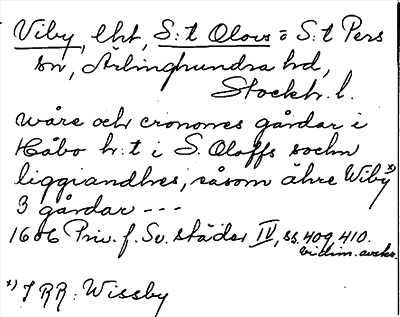 Viby, ehst, S:t Olovs = S:t Pers
sn, Ärlinghundra hd,
Stockh. l.
wåre och cronones gårdar i
Håbo h:t i S. Oloffs sochn
liggiandhes, såsom ähre Wiby *)
3 gårdar ---
1606 Priv. f. Sv. städer IV, ss. 409, 410.
vidim. avskr.
*) J RR: Wissby